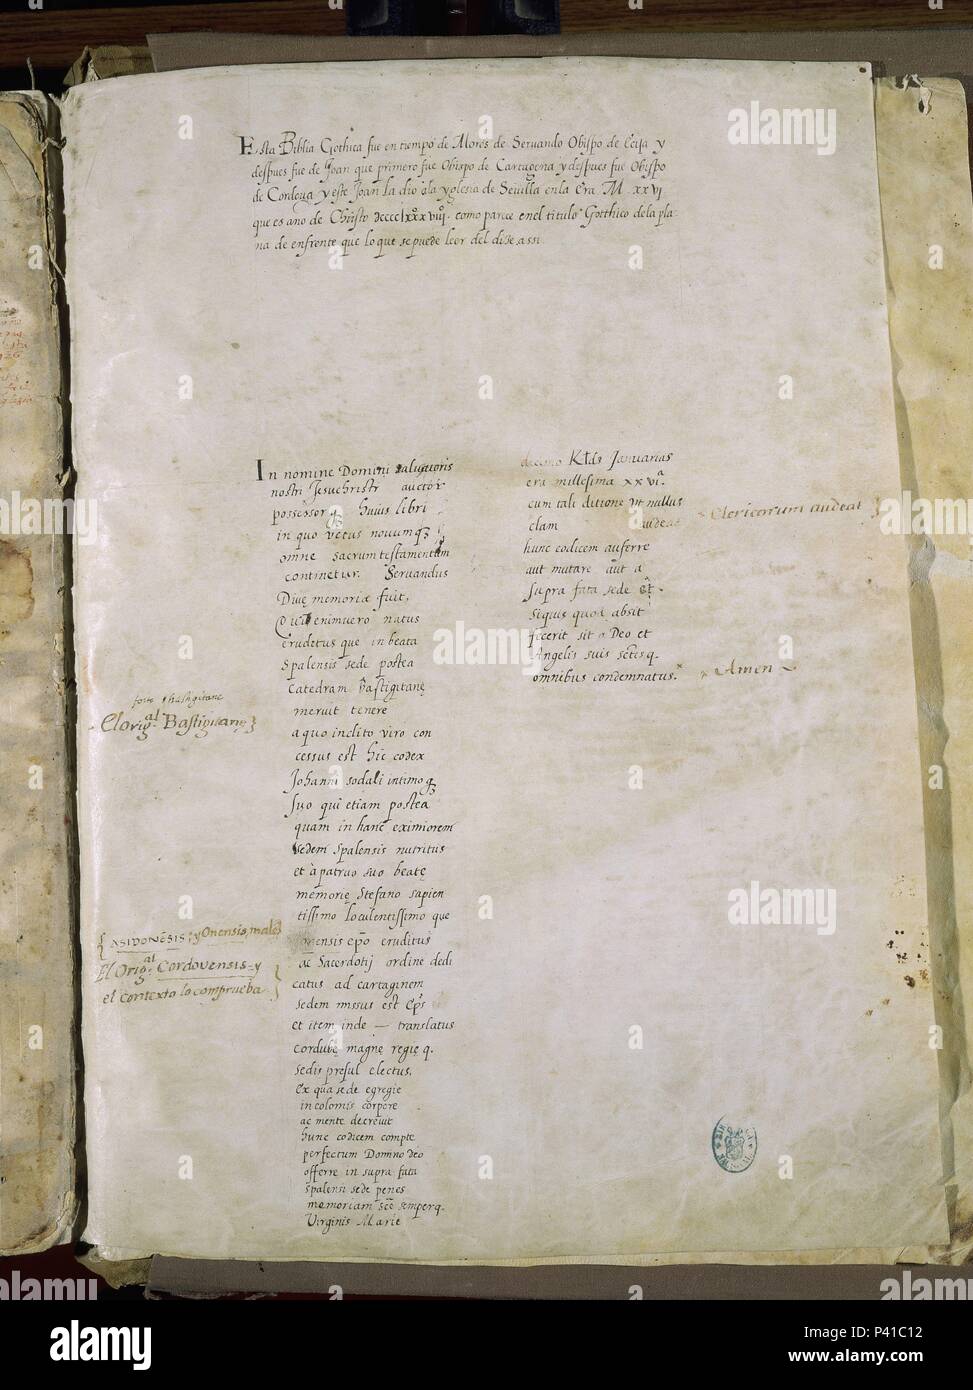 Esta Biblia Gothica fue en tiempo de Moros de Servando Obispo de Ecija y
despues fue de Joan que primero fue Obispo de Cartagena y despues fue Obispo
de Cordova y este Joan la dio ala yglesia de Sevilla en la Era. M. xxvi.
que es año de Christo dcccclxxxviii. como parece enel titulo Gotthico dela pla-
na de enfrente que lo que se puede leer del dize assi.
In nomine Domini salvatoris
nostri Jesuchristi auctor
possessorq3 huius libri
in quo vetus novumq3
omne sacrum testamentum
continetur. Servandus
Divę memoriæ fuit,
enimuero natus
eruditus que in beata
Spalensis sede postea
Catedram Bastigitanę
meruit tenere
a quo inclito viro con
cessus est hic codex
Johanni sodali intimoq3
suo qui etiam postea
quam in hanc eximiorem
sedem spalensis nutritus
et à patruo suo beatę
memorię Stefano sapien
tissimo loculentissimo que
onensis epo eruditus
ac Sacerdotij ordine dedi
catus ad cartaginem
sedem missus est eps
et item inde — translatus
Cordubę magnę regię q.
sedis presul electus,
ex qua sede egregie
incolomis corpore
ac mente decrevit
hunc codicem compte
perfectum Domino deo
offerre in supra fata
spalensi sede penes
memoriam scę semperq.
Virginis Marie
decimo Klds Januarias
era millesima xxvi.ª
cum tali ditione ut nullus
clam audeat
hunc codicem auferre
aut mutare aut a
supra fata sede et.
siquis quod absit
fecerit sit a Deo et
Angelis suis sctisq.
omnibus condemnatus.
Clericorum audeat }
Amen
forte Astigitane
El orig.al Bastigitanę }
{ ASIDONĒSIS; y Onensis, male }
El Orig.al Cordovensis - y
el contexto lo comprueba }
a
alamy
alamy
alamy
Image ID: P41C12
www.alamy.com